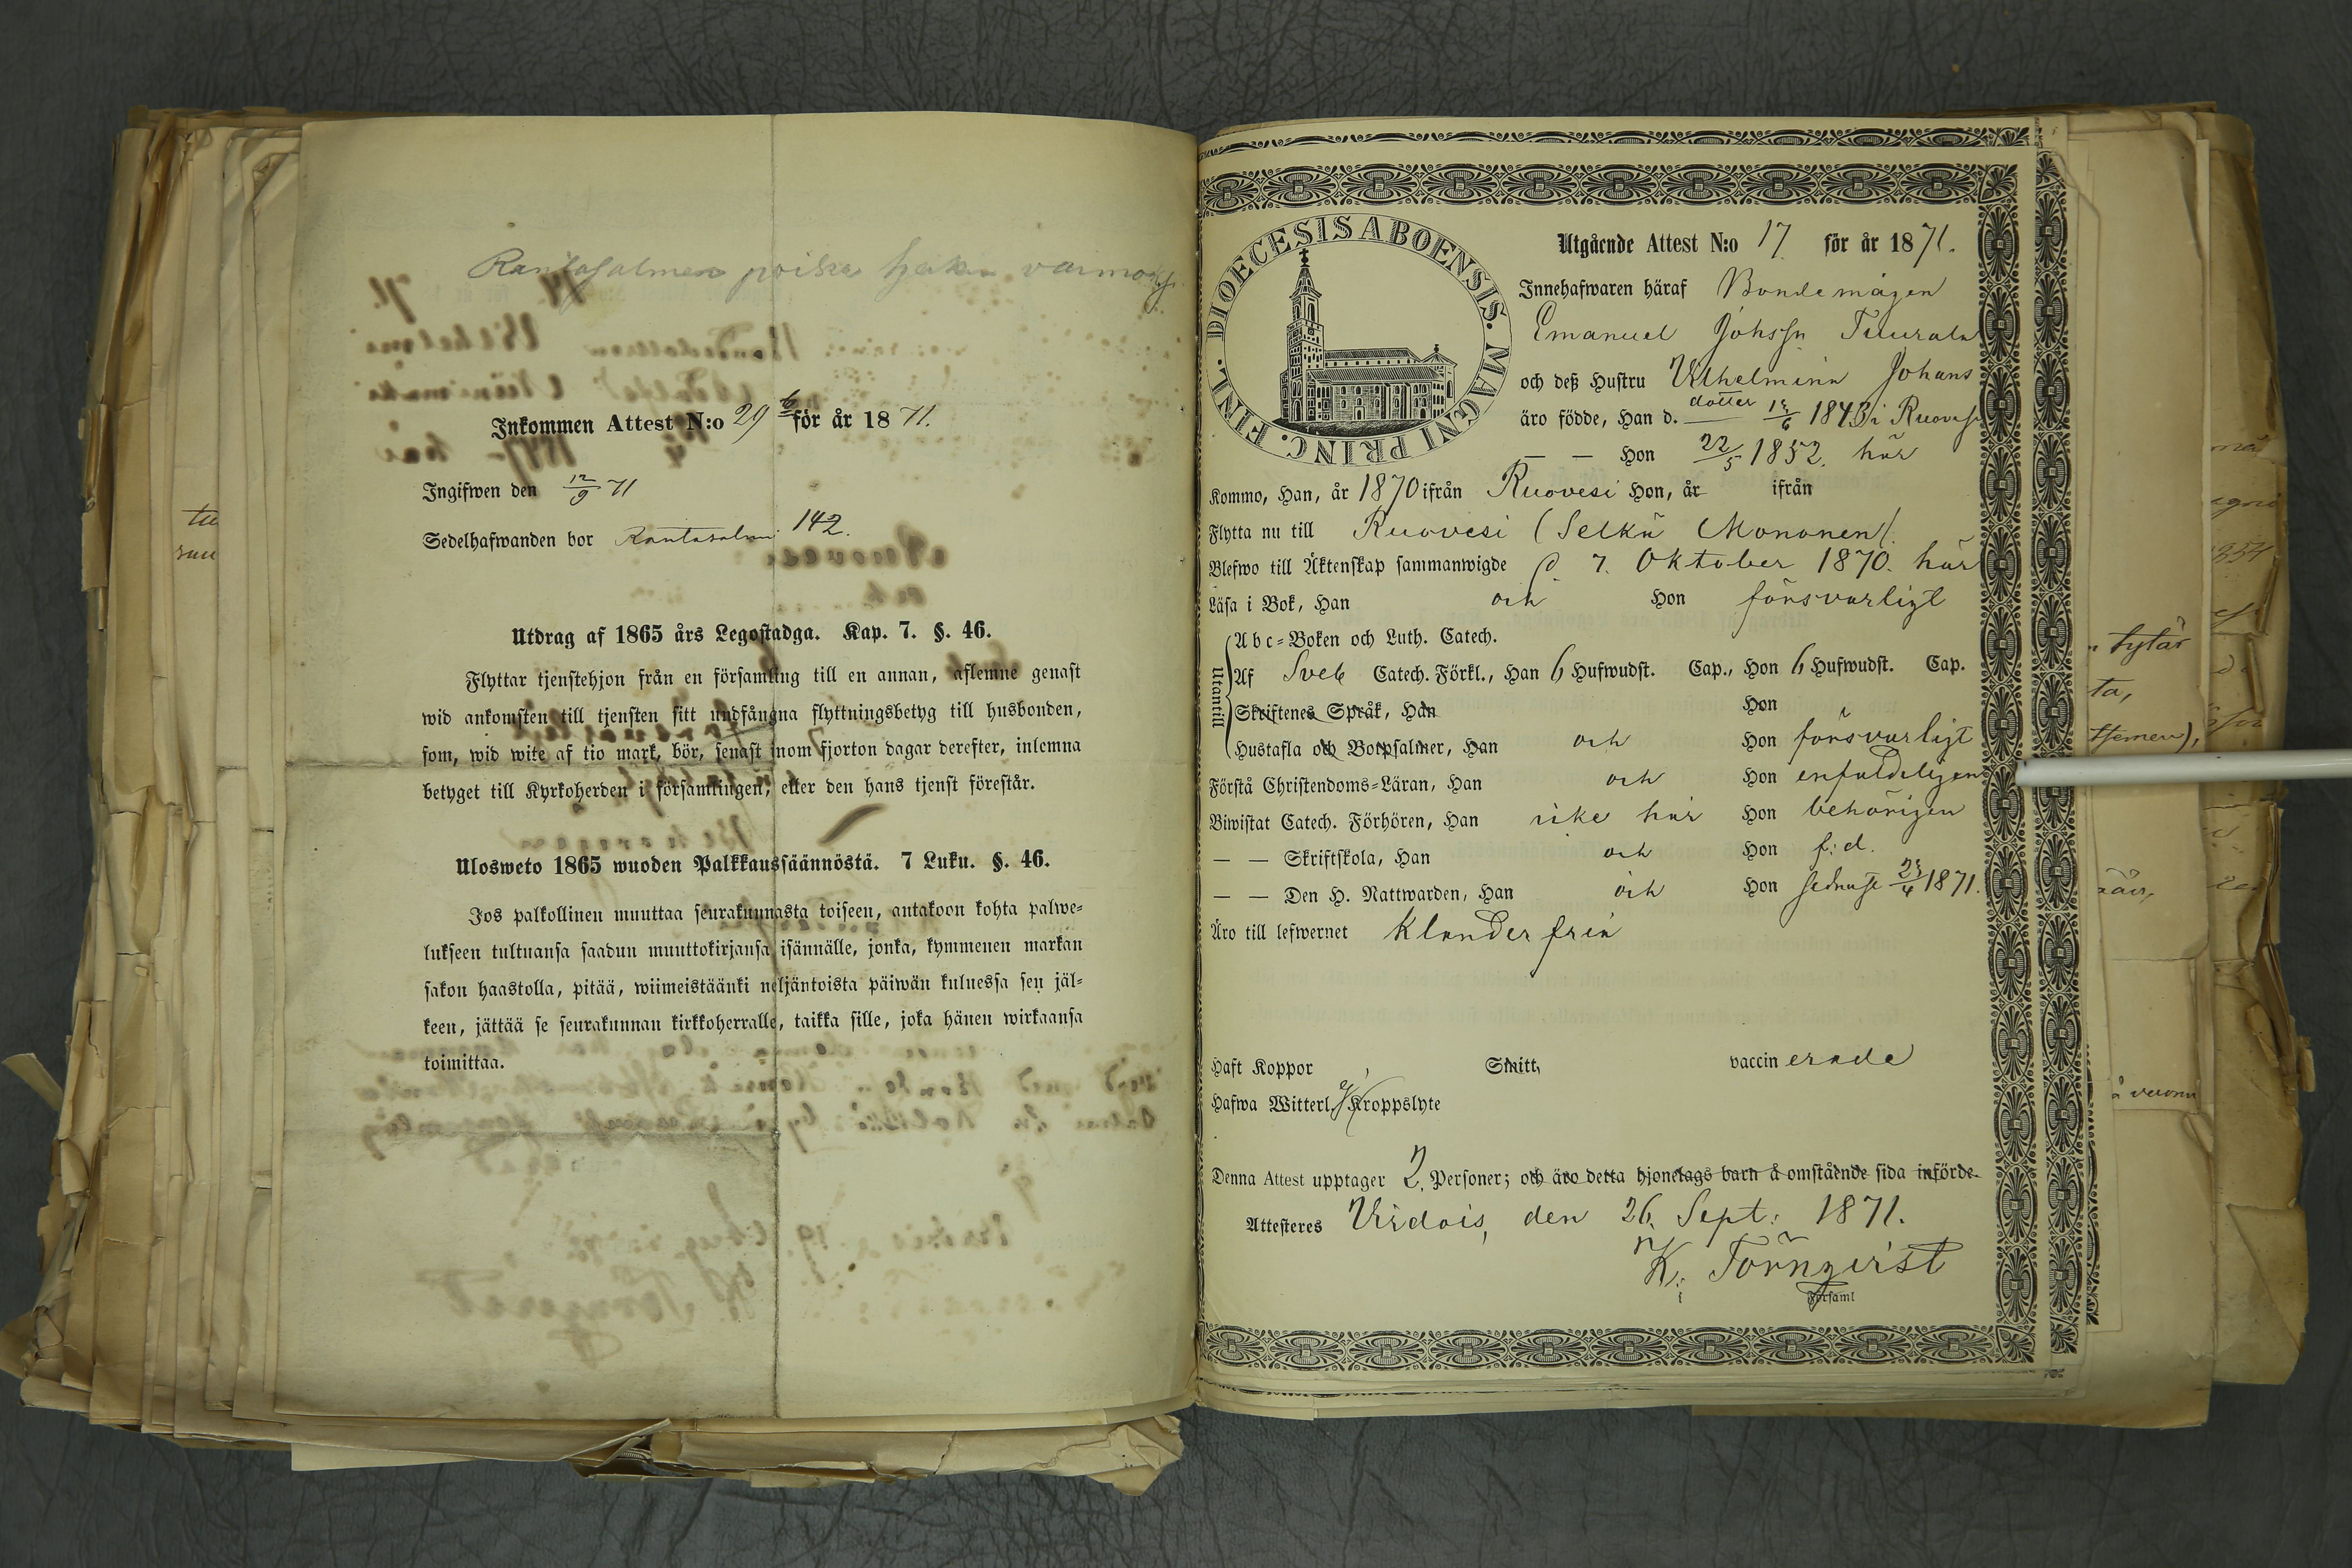 Rantasalmen poika
Inkommen Attest N:o 29 b för år 1871.
Ingifwen den 12/9 71
Sedelhafwanden bor Rantasalmi 142.
Utdrag af 1865 års Legostadga. Kap. 7. §. 46.
Flyttar tjenstehjon från en församling till en annan, aflemne genast
wid ankomsten till tjensten sitt undfångna flyttningsbetyg till husbonden,
som, wid wite af tio mark, bör, senast inom fjorton dagar derefter, inlemna
betyget till Kyrkoherden i församlingen, eller den hans tjenst förestår.
Ulosweto 1865 wuoden Palkkaussäännöstä. 7 Luku. §. 46.
Jos palkollinen muuttaa seurakunnasta toiseen, antakoon kohta palwe-
lukseen tultuansa saadun muuttokirjansa isännälle, jonka, kymmenen markan
sakon haastolla, pitää, wiimeistäänki neljäntoista päiwän kuluessa sen jäl-
keen, jättää se seurakunnan kirkkoherralle, taikka sille, joka hänen wirkaansa
toimittaa.
DIOECESIS ABOENSIS. MAGNI PRINC. FINL.
Utgående Attest N:o 17 för år 1871.
Innehafwaren häraf Bondemågen
Emanuel Johsn Tuurala
och deß Hustru Vilhelmina Johans
dotter
äro födde, Han d. 1843 i Ruovesi
— — Hon 22/5 1852. här
Kommo, Han, år 1870 ifrån Ruovesi Hon, år ifrån
Flytta nu till Ruovesi (Selkä Mononen).
Blefwo till Äktenskap sammanwigde d. 7. Oktober 1870. här
Läsa i Bok, Han och Hon försvarligt
Utantill
Abc-Boken och Luth. Catech.
Af Sveb Catech. Förkl., Han 6 Hufwudst. Cap., Hon 6 Hufwudst. Cap.
Skriftenes Språk, Han Hon
Hustafla och Botpsalmer, Han och Hon försvarligt
Förstå Christendoms-Läran, Han och Hon enfaldeligen
Biwistat Catech. Förhören, Han icke här Hon behörigen
— — Skriftskola, Han och Hon f: d.
— — Den H. Nattwarden, Han och Hon senast 23/4 1871.
Äro till lefwernet Klanderfria
Haft Koppor Smitt, vaccinerade
Hafwa Witterl. ej Kroppslyte
Denna Attest upptager 2. Personer; och äro detta hjonelags barn å omstående sida införde.
Attesteres Virdois, den 26 Sept. 1871.
K. Törnqvist
i Församl